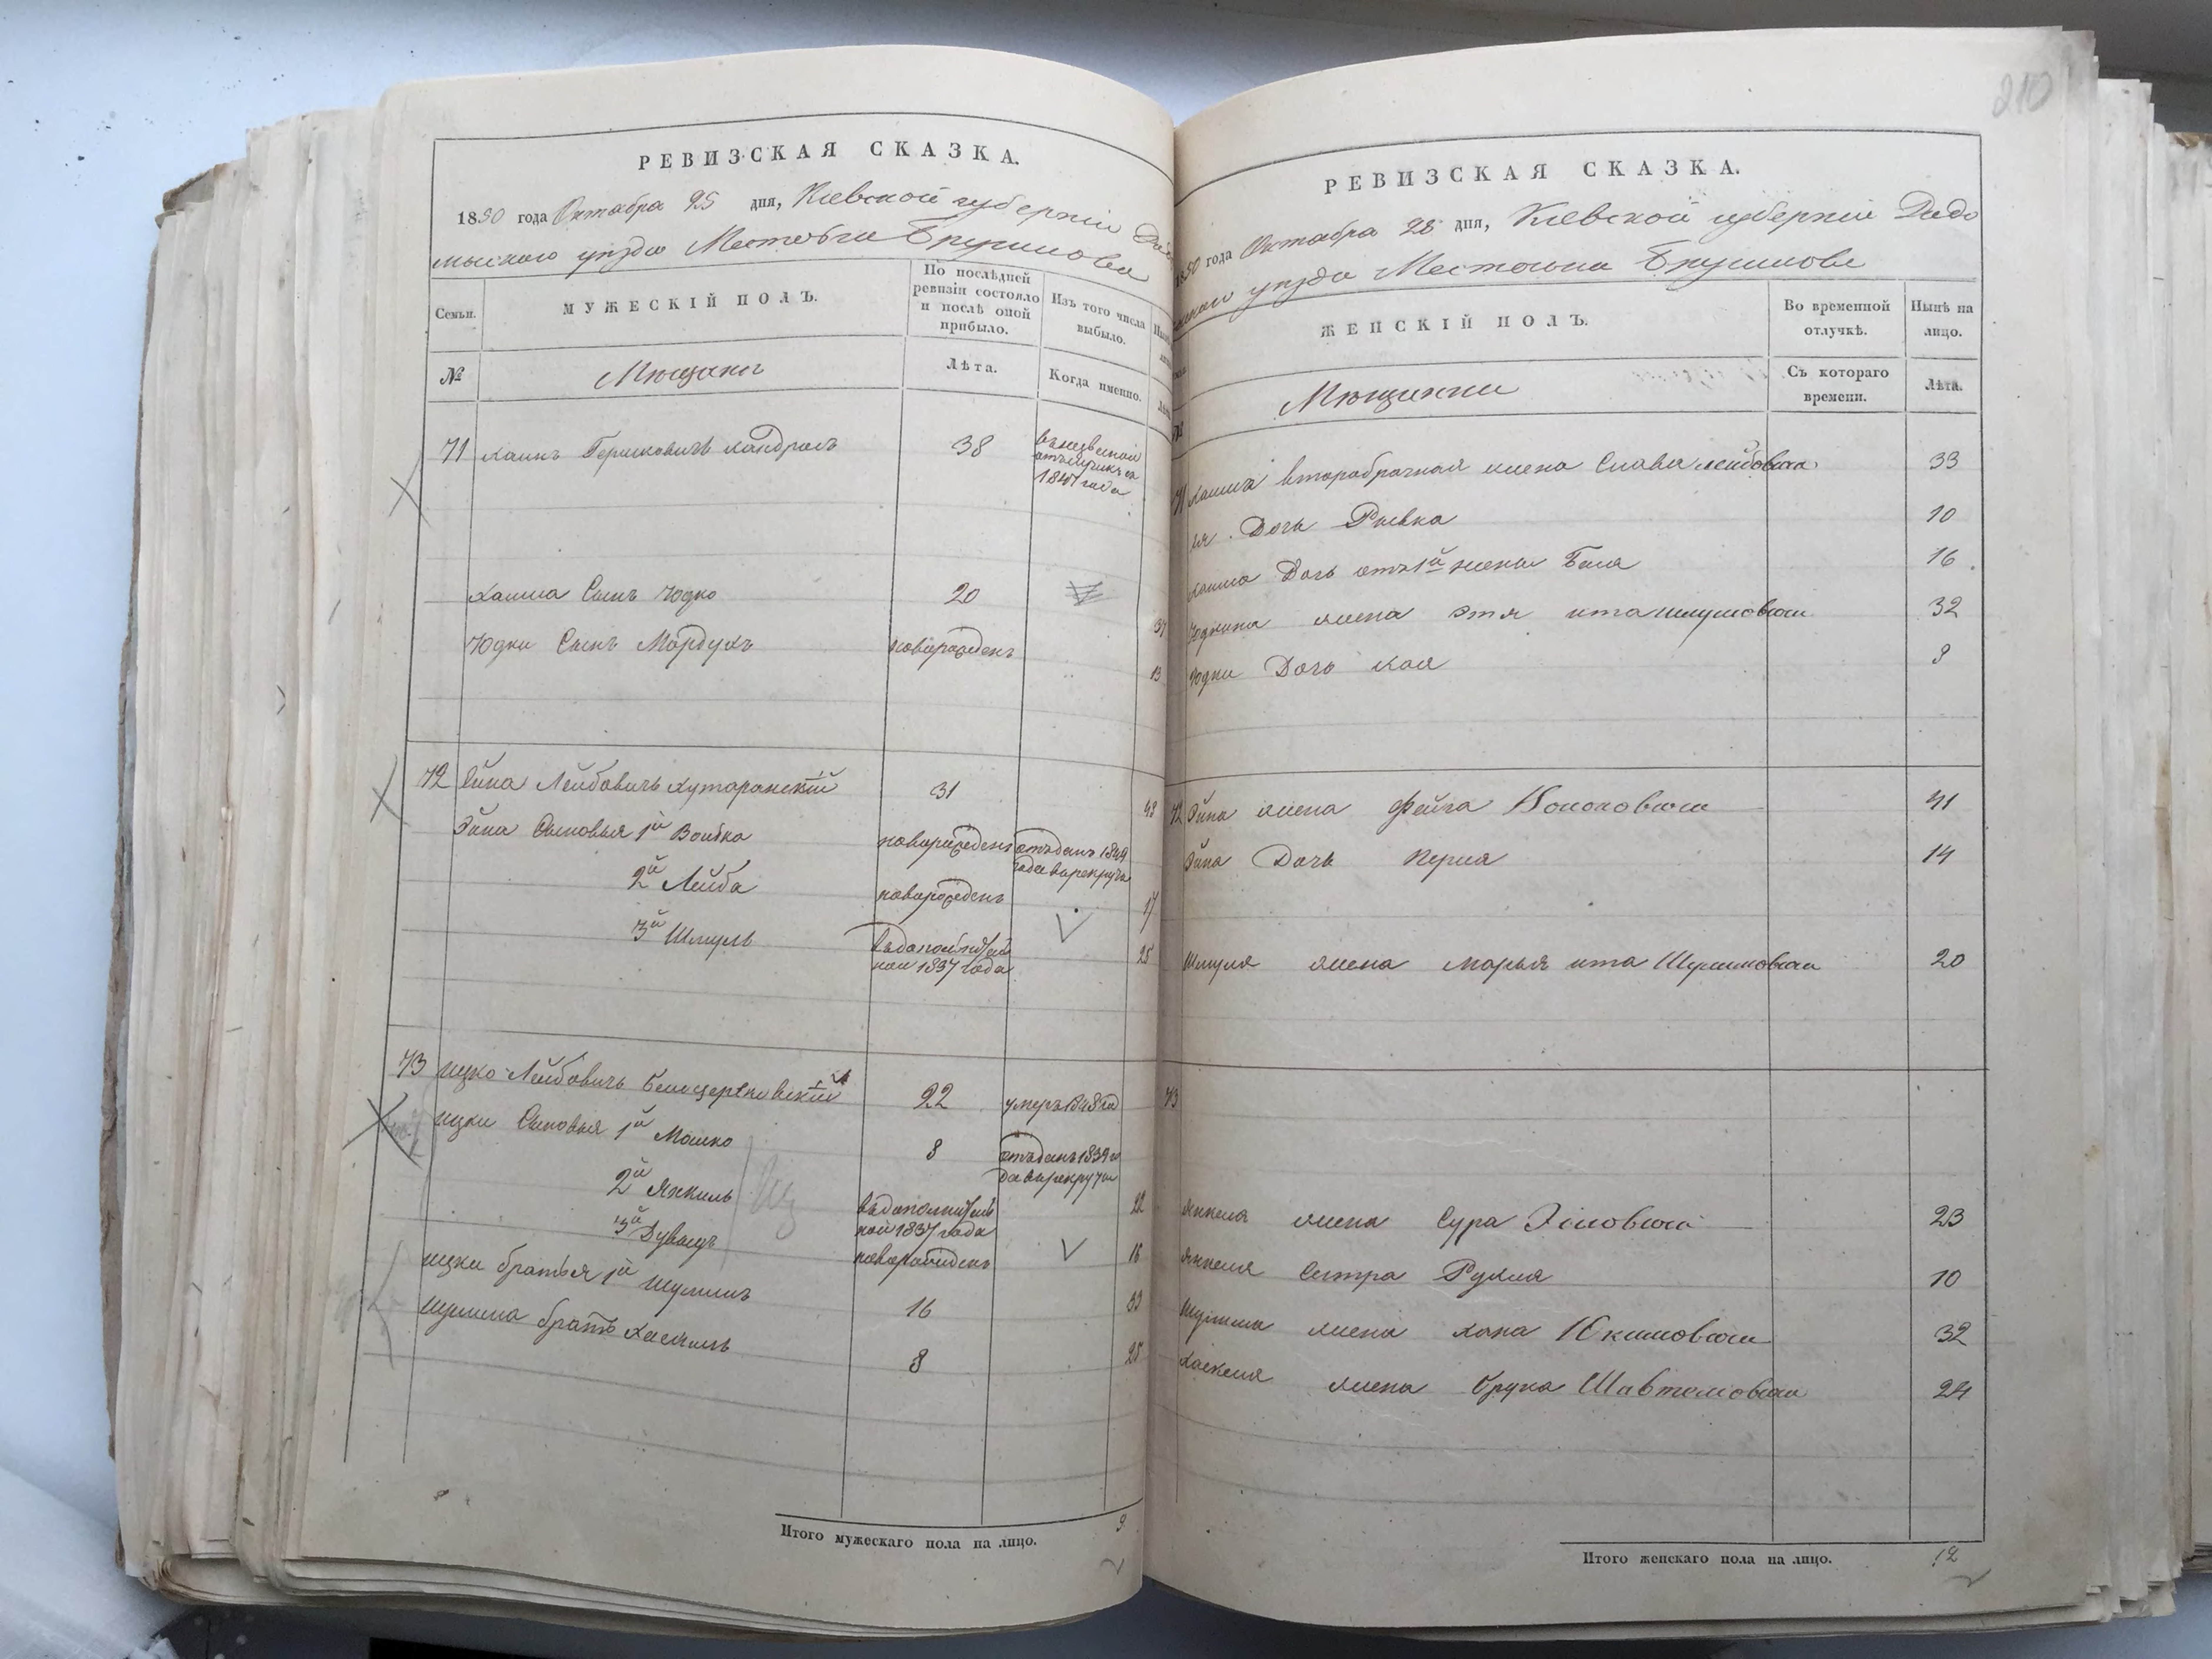 210
РЕВИЗСКАЯ СКАЗКА.
1850 года Октября 25 дня, Кіевской губерніи
мыскаго уѣзда Местечка Брусилова
Семьи.
МУЖЕСКІЙ ПОЛЪ.
По послѣдней ревизіи состояло и послѣ оной прибыло.
Изъ того числа выбыло.
№
Мѣщане
Лѣта.
Когда именно.
71 Хаимъ Гершковичъ Кандраль 38
1847 года
Хаима Сынъ Юдко 20 37
Юдки Сынъ Мордухъ новорожденъ 13
72 Эйна Лейбовичъ Хуторанскій 31 48
Эйна Сыновья 1й Волько новорожденъ отъданъ 1849 года в рекруты
2й Лейба новорожденъ 17
3й Шмуль въ дополнитель 25
ной 1837 года
73 Ицко Лейбовичъ Белоцерковскій 22 умеръ 1848 год
Ицки Сыновья 1й Мошко 8 отъданъ 1839 го
да в рекруты
2й Янкель въ дополнитель 22
ной 1837 года
3й Дувидъ новорожденъ 16
Ицки братья 1й Шулимъ 16 33
Шулима братъ Хаскель 8 25
Итого мужескаго пола на лицо. 9
РЕВИЗСКАЯ СКАЗКА.
1850 года Октября 25 дня, Кіевской губерніи Радо
уѣзда Местечка Брусилова
ЖЕНСКІЙ ПОЛЪ.
Во временной отлучкѣ.
Нынѣ на лицо.
Мѣщанки
Съ котораго времени.
Лѣта.
71 Хаима вторабрачная жена Слава Лейбовна 33
Дочь Рывка 10
Хаима Дочь отъ 1й жены Беля 16
Юдкина жена Этя ита Шмулиовна 32
Юдки Дочь Хая 9
72 Эйна жена Фейга 41
Эйна Дочь Перля 14
Шмуля жена Марья ита Шулимовна 20
73
Янкеля жена Сура 23
Янкеля Сестра Рухля 10
Шулима жена Хана 32
Хаскеля жена Бруха 24
Итого женскаго пола на лицо. 12